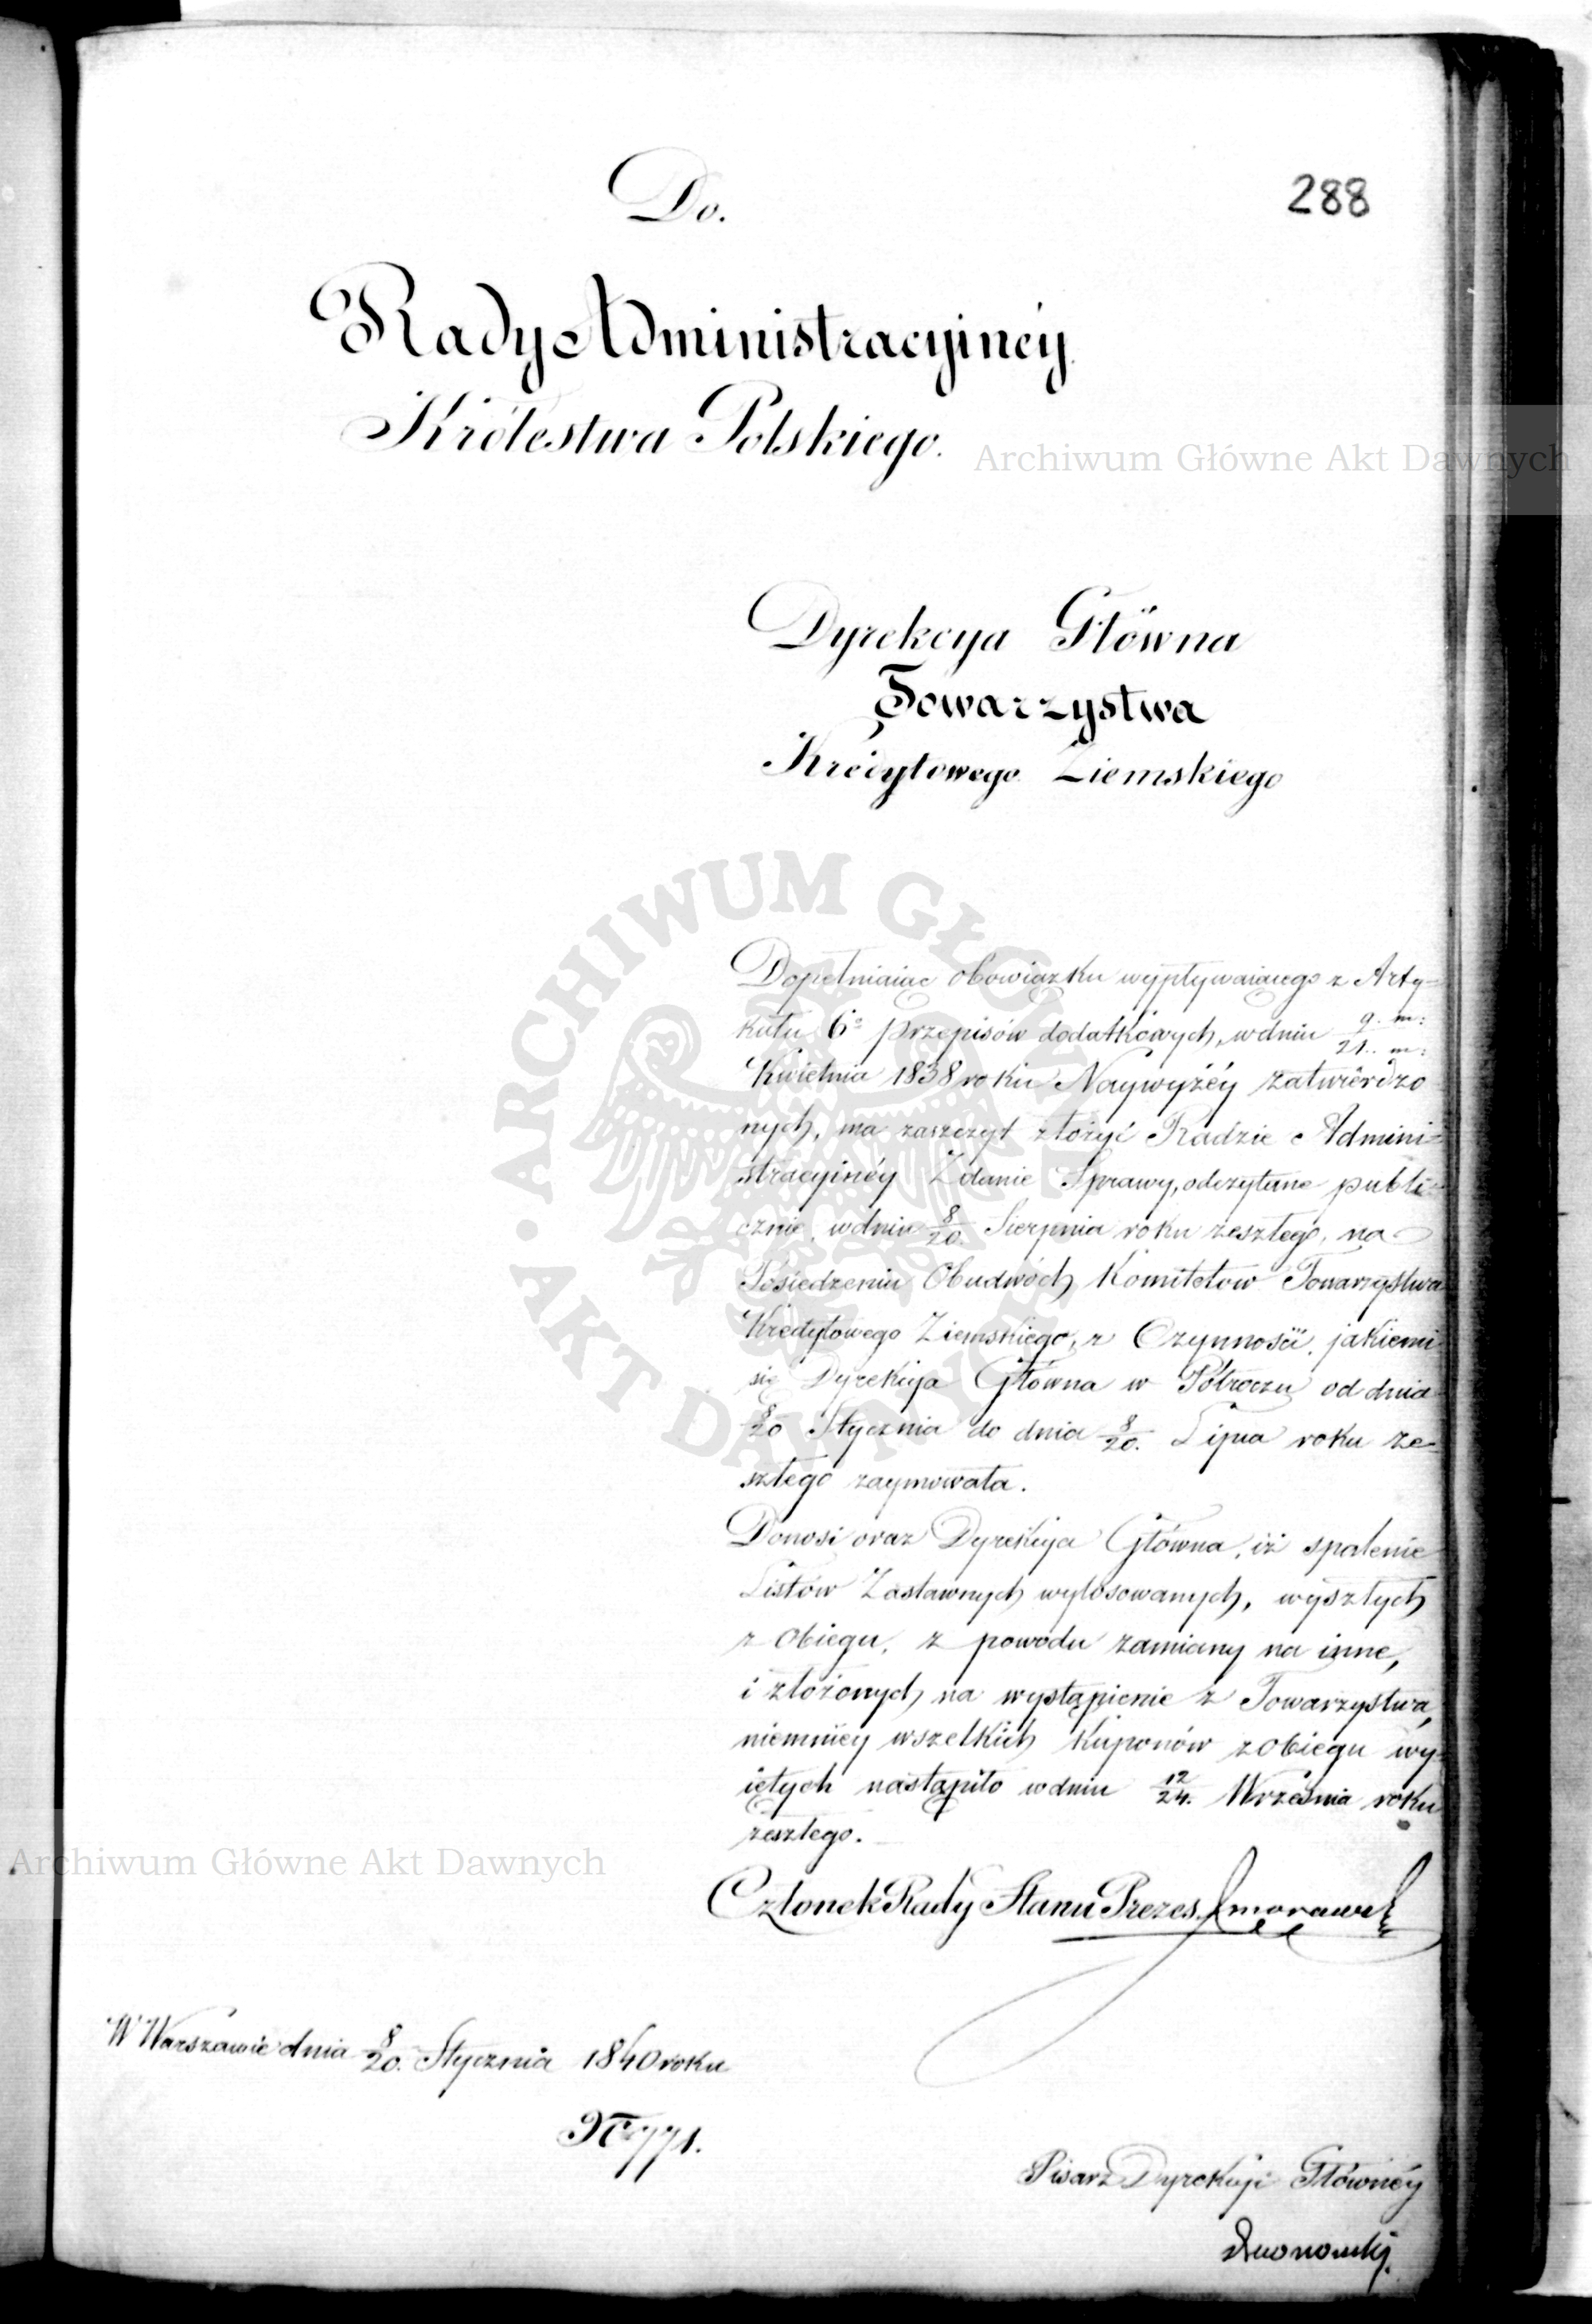 288
Do.
Rady Administracyinéy
Królestwa Polskiego.
Archiwum Główne Akt Dawnych
Dyrekcya Główna
Towarzystwa
Kredytowego Ziemskiego
ARCHIWUM GŁÓWNE AKT DAWNYCH
Dopełniaiąc obowiązku wypływaiącego z Arty=
kułu 6º przepisów dodatkowych, w dniu 9. m: / 21. m:
Kwietnia 1838 roku Naywyżéy zatwierdzo
nych, ma zaszczyt złożyć Radzie Admini=
stracyinéy Zdanie Sprawy, odczytane publi=
cznie, w dniu 8/20 Sierpnia roku zeszłego, na
Posiedzeniu Obudwóch Komitetów Towarzystwa
Kredytowego Ziemskiego, z Czynności, jakiemi
się Dyrekcya Główna w Półroczu od dnia
8/20 Stycznia do dnia 8/20. Lipca roku ze=
szłego zaymowała.
Donosi oraz Dyrekcya Główna, iż spalenie
Listów Zastawnych wylosowanych, wyszłych
z obiegu, z powodu zamiany na inne,
i złożonych na wystąpienie z Towarzystwa,
niemniéy wszelkich Kuponów z obiegu wy=
iętych nastąpiło w dniu 12/24. Września roku
zeszłego.
Archiwum Główne Akt Dawnych
Członek Rady Stanu Prezes Morawski
W Warszawie dnia 8/20. Stycznia 1840 roku
Nº 771.
Pisarz Dyrekcyi Głównéy